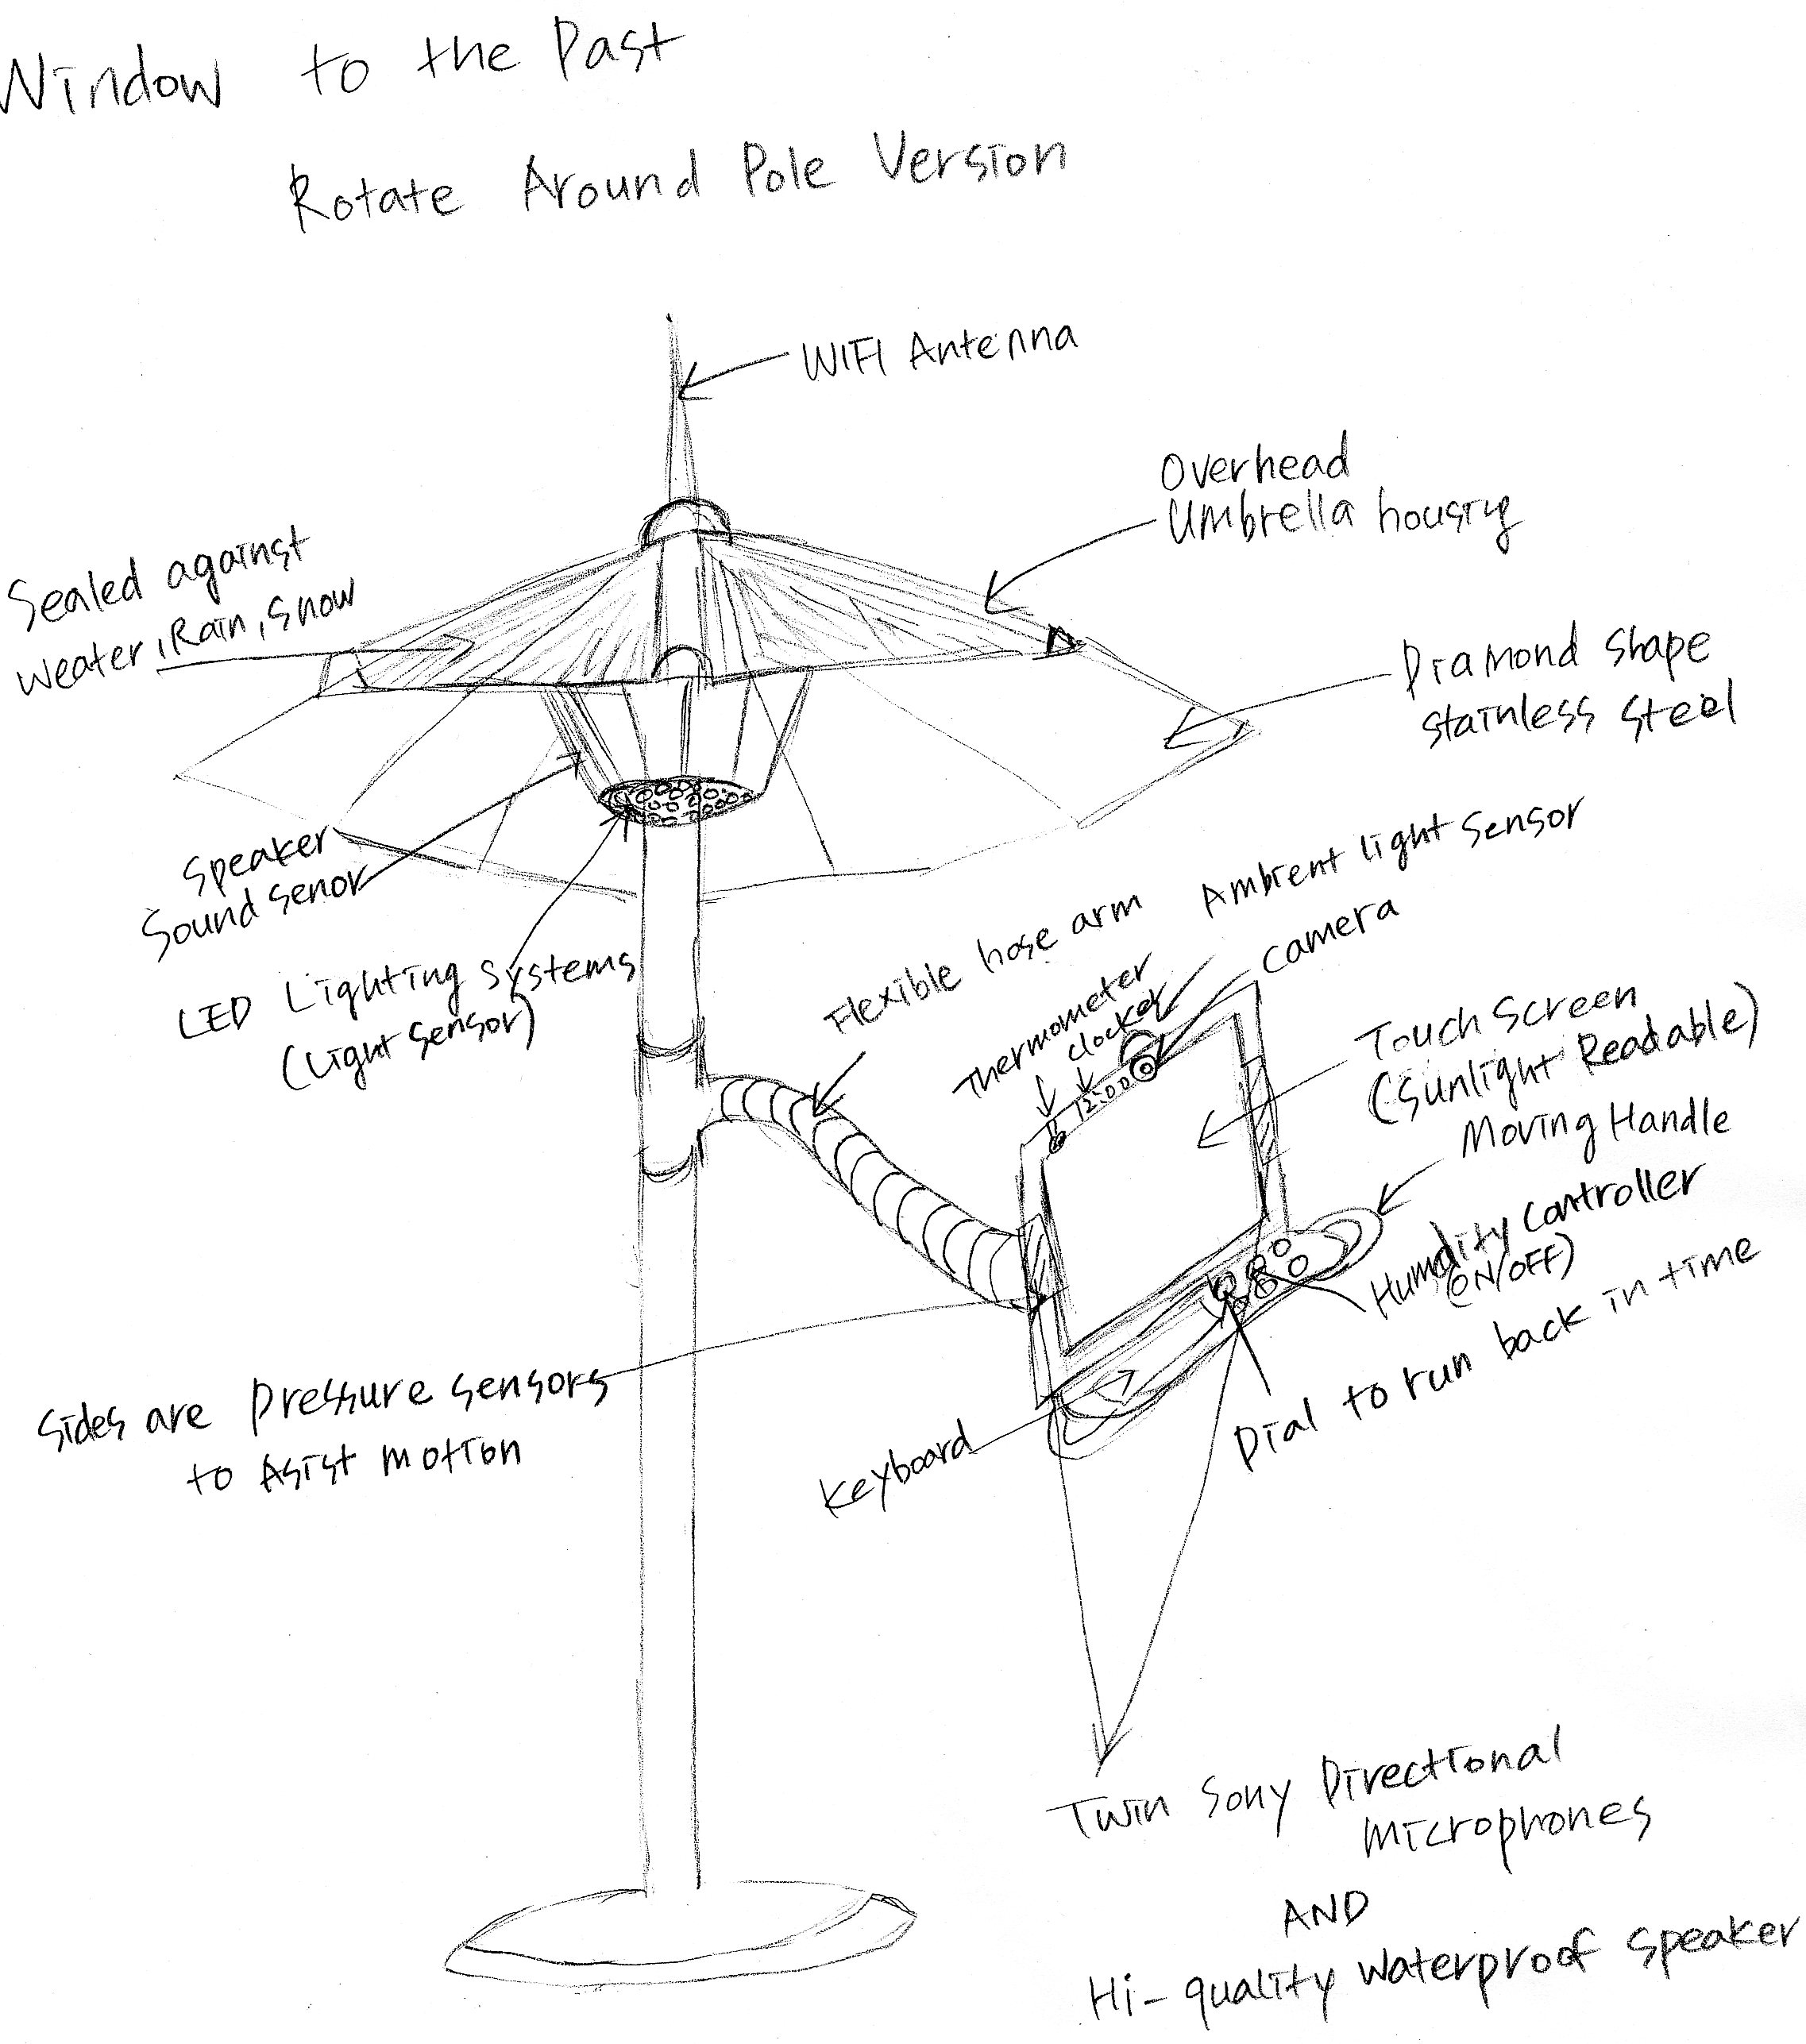 Window to the Past
Rotate Around Pole Version
WIFI Antenna
Overhead
Umbrella housing
Sealed against
weater, Rain, Snow
Diamond shape
stainless steel
Speaker
Sound senor
LED Lighting Systems
(Light Sensor)
Flexible hose arm
Ambient light sensor
Camera
Thermometer
clocker
12:00
Touch Screen
(Sunlight Readable)
Moving Handle
Humdity Controller
(ON/OFF)
Dial to run back in time
Sides are Pressure sensors
to Asist motion
Keyboard
Twin Sony Directional
Microphones
AND
Hi-quality waterproof speaker